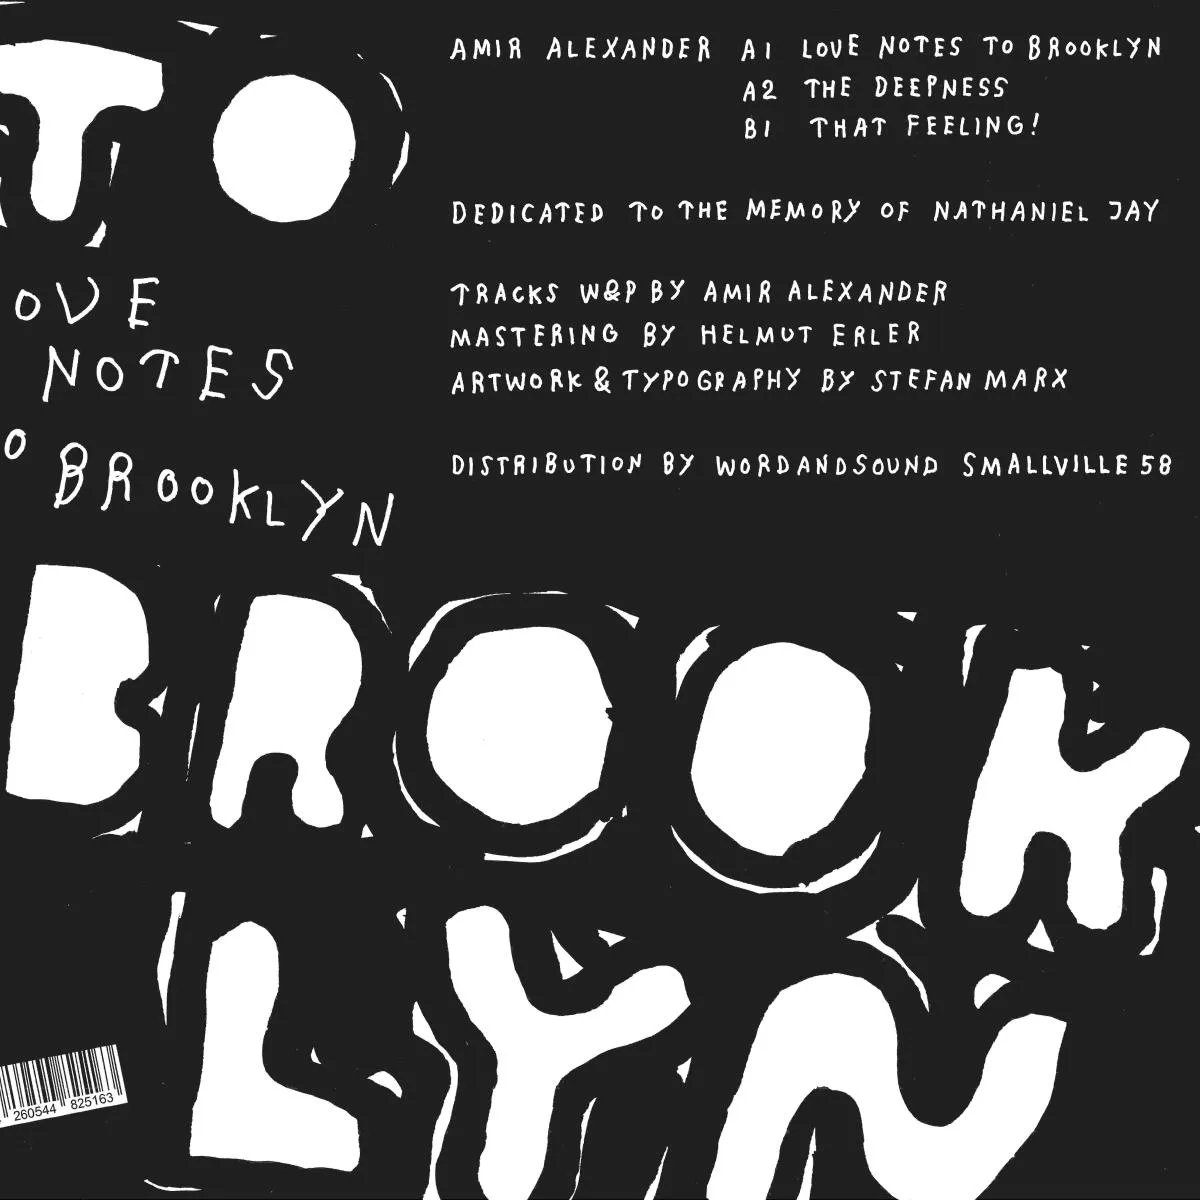 AMIR ALEXANDER A1 LOVE NOTES TO BROOKLYN
A2 THE DEEPNESS
B1 THAT FEELING!
DEDICATED TO THE MEMORY OF NATHANIEL JAY
TRACKS W&P BY AMIR ALEXANDER
MASTERING BY HELMUT ERLER
ARTWORK & TYPOGRAPHY BY STEFAN MARX
DISTRIBUTION BY WORDANDSOUND SMALLVILLE 58
TO
OVE
NOTES
O BROOKLYN
BROOK
LYN
260544 825163